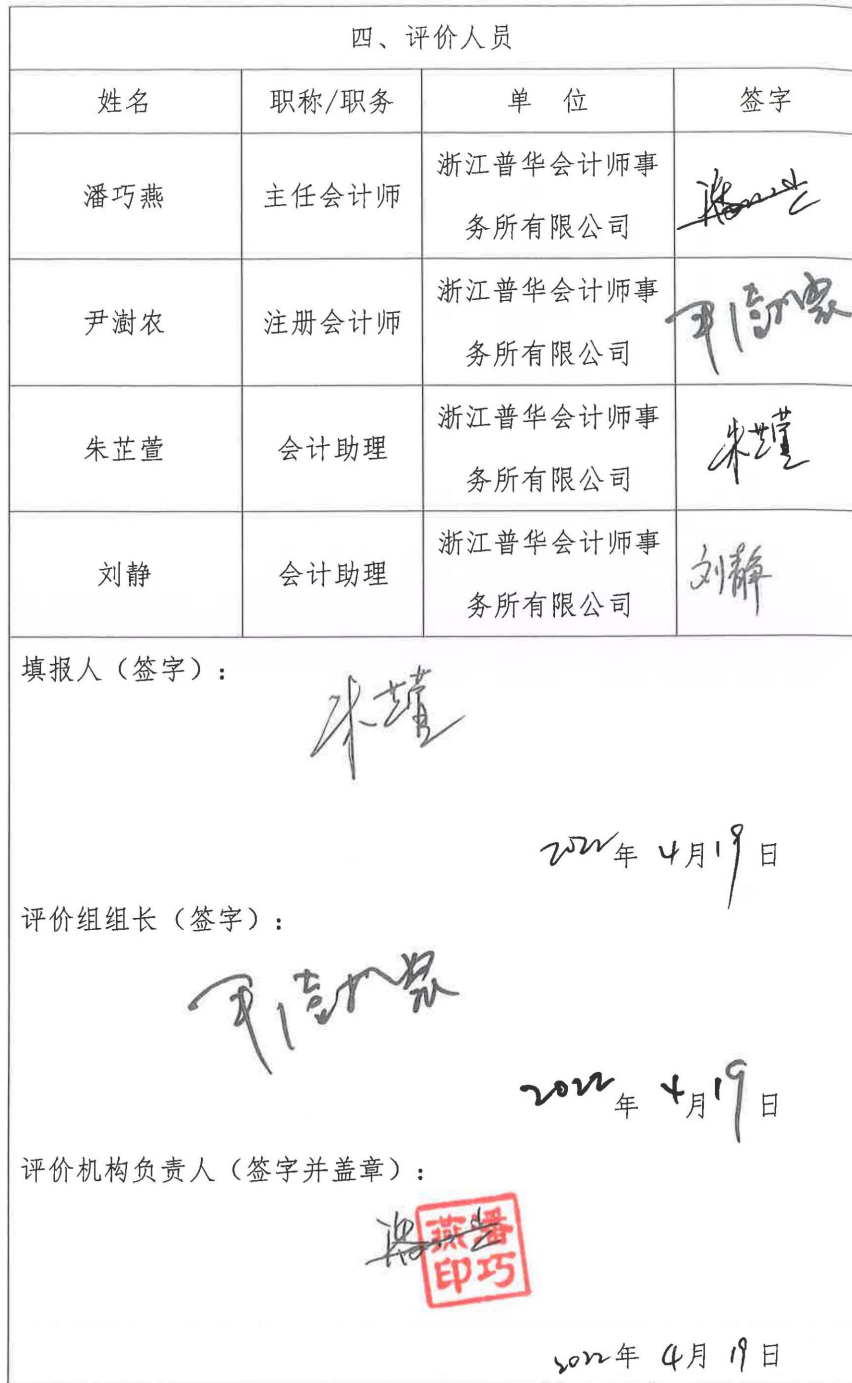 四、评价人员
姓名 职称/职务 单 位 签字
潘巧燕 主任会计师 浙江普华会计师事务所有限公司
尹澍农 注册会计师 浙江普华会计师事务所有限公司 尹澍农
朱芷萱 会计助理 浙江普华会计师事务所有限公司 朱芷萱
刘静 会计助理 浙江普华会计师事务所有限公司 刘静
填报人（签字）：
朱芷萱
2022年 4月19日
评价组组长（签字）：
尹澍农
2022年 4月19日
评价机构负责人（签字并盖章）：
潘巧燕印
2022年 4月19日